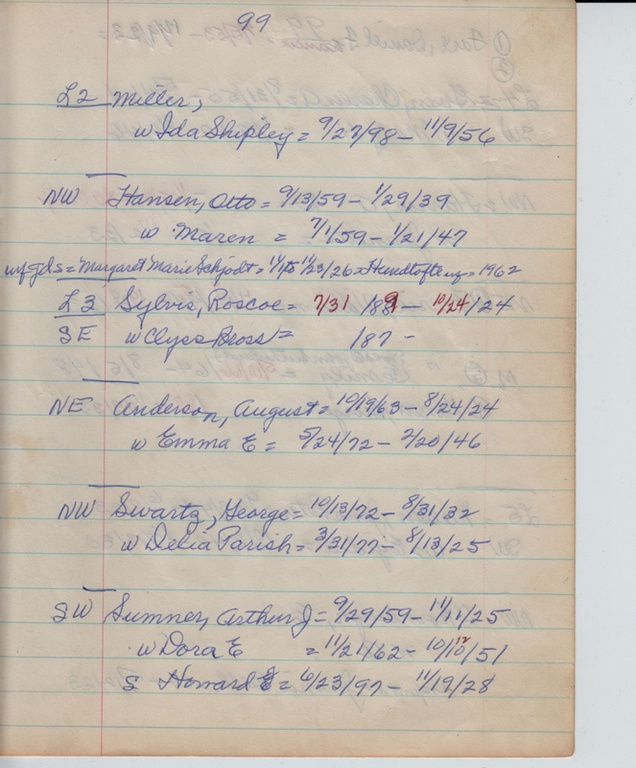 99
L2 Miller,
w Ida Shipley = 9/27/98 - 11/9/56
NW Hansen, Otto = 9/13/59 - 1/29/39
w Maren = 7/1/59 - 1/21/47
= Margaret Marie Schjodt = 11/23/26 = 1962
L3 Sylvis, Roscoe = 7/31 1889 - 10/24/24
SE w Clyss Bloss = 187 -
NE Anderson, August = 10/19/63 - 8/24/24
w Emma E = 5/24/72 - 2/20/46
NW Swartz, George = 10/13/72 - 8/31/32
w Delia Parish = 3/31/77 - 8/13/25
SW Sumner, Arthur J = 9/29/59 - 11/11/25
w Dora E = 11/21/62 - 10/12/51
S Howard E = 6/23/97 - 11/19/28